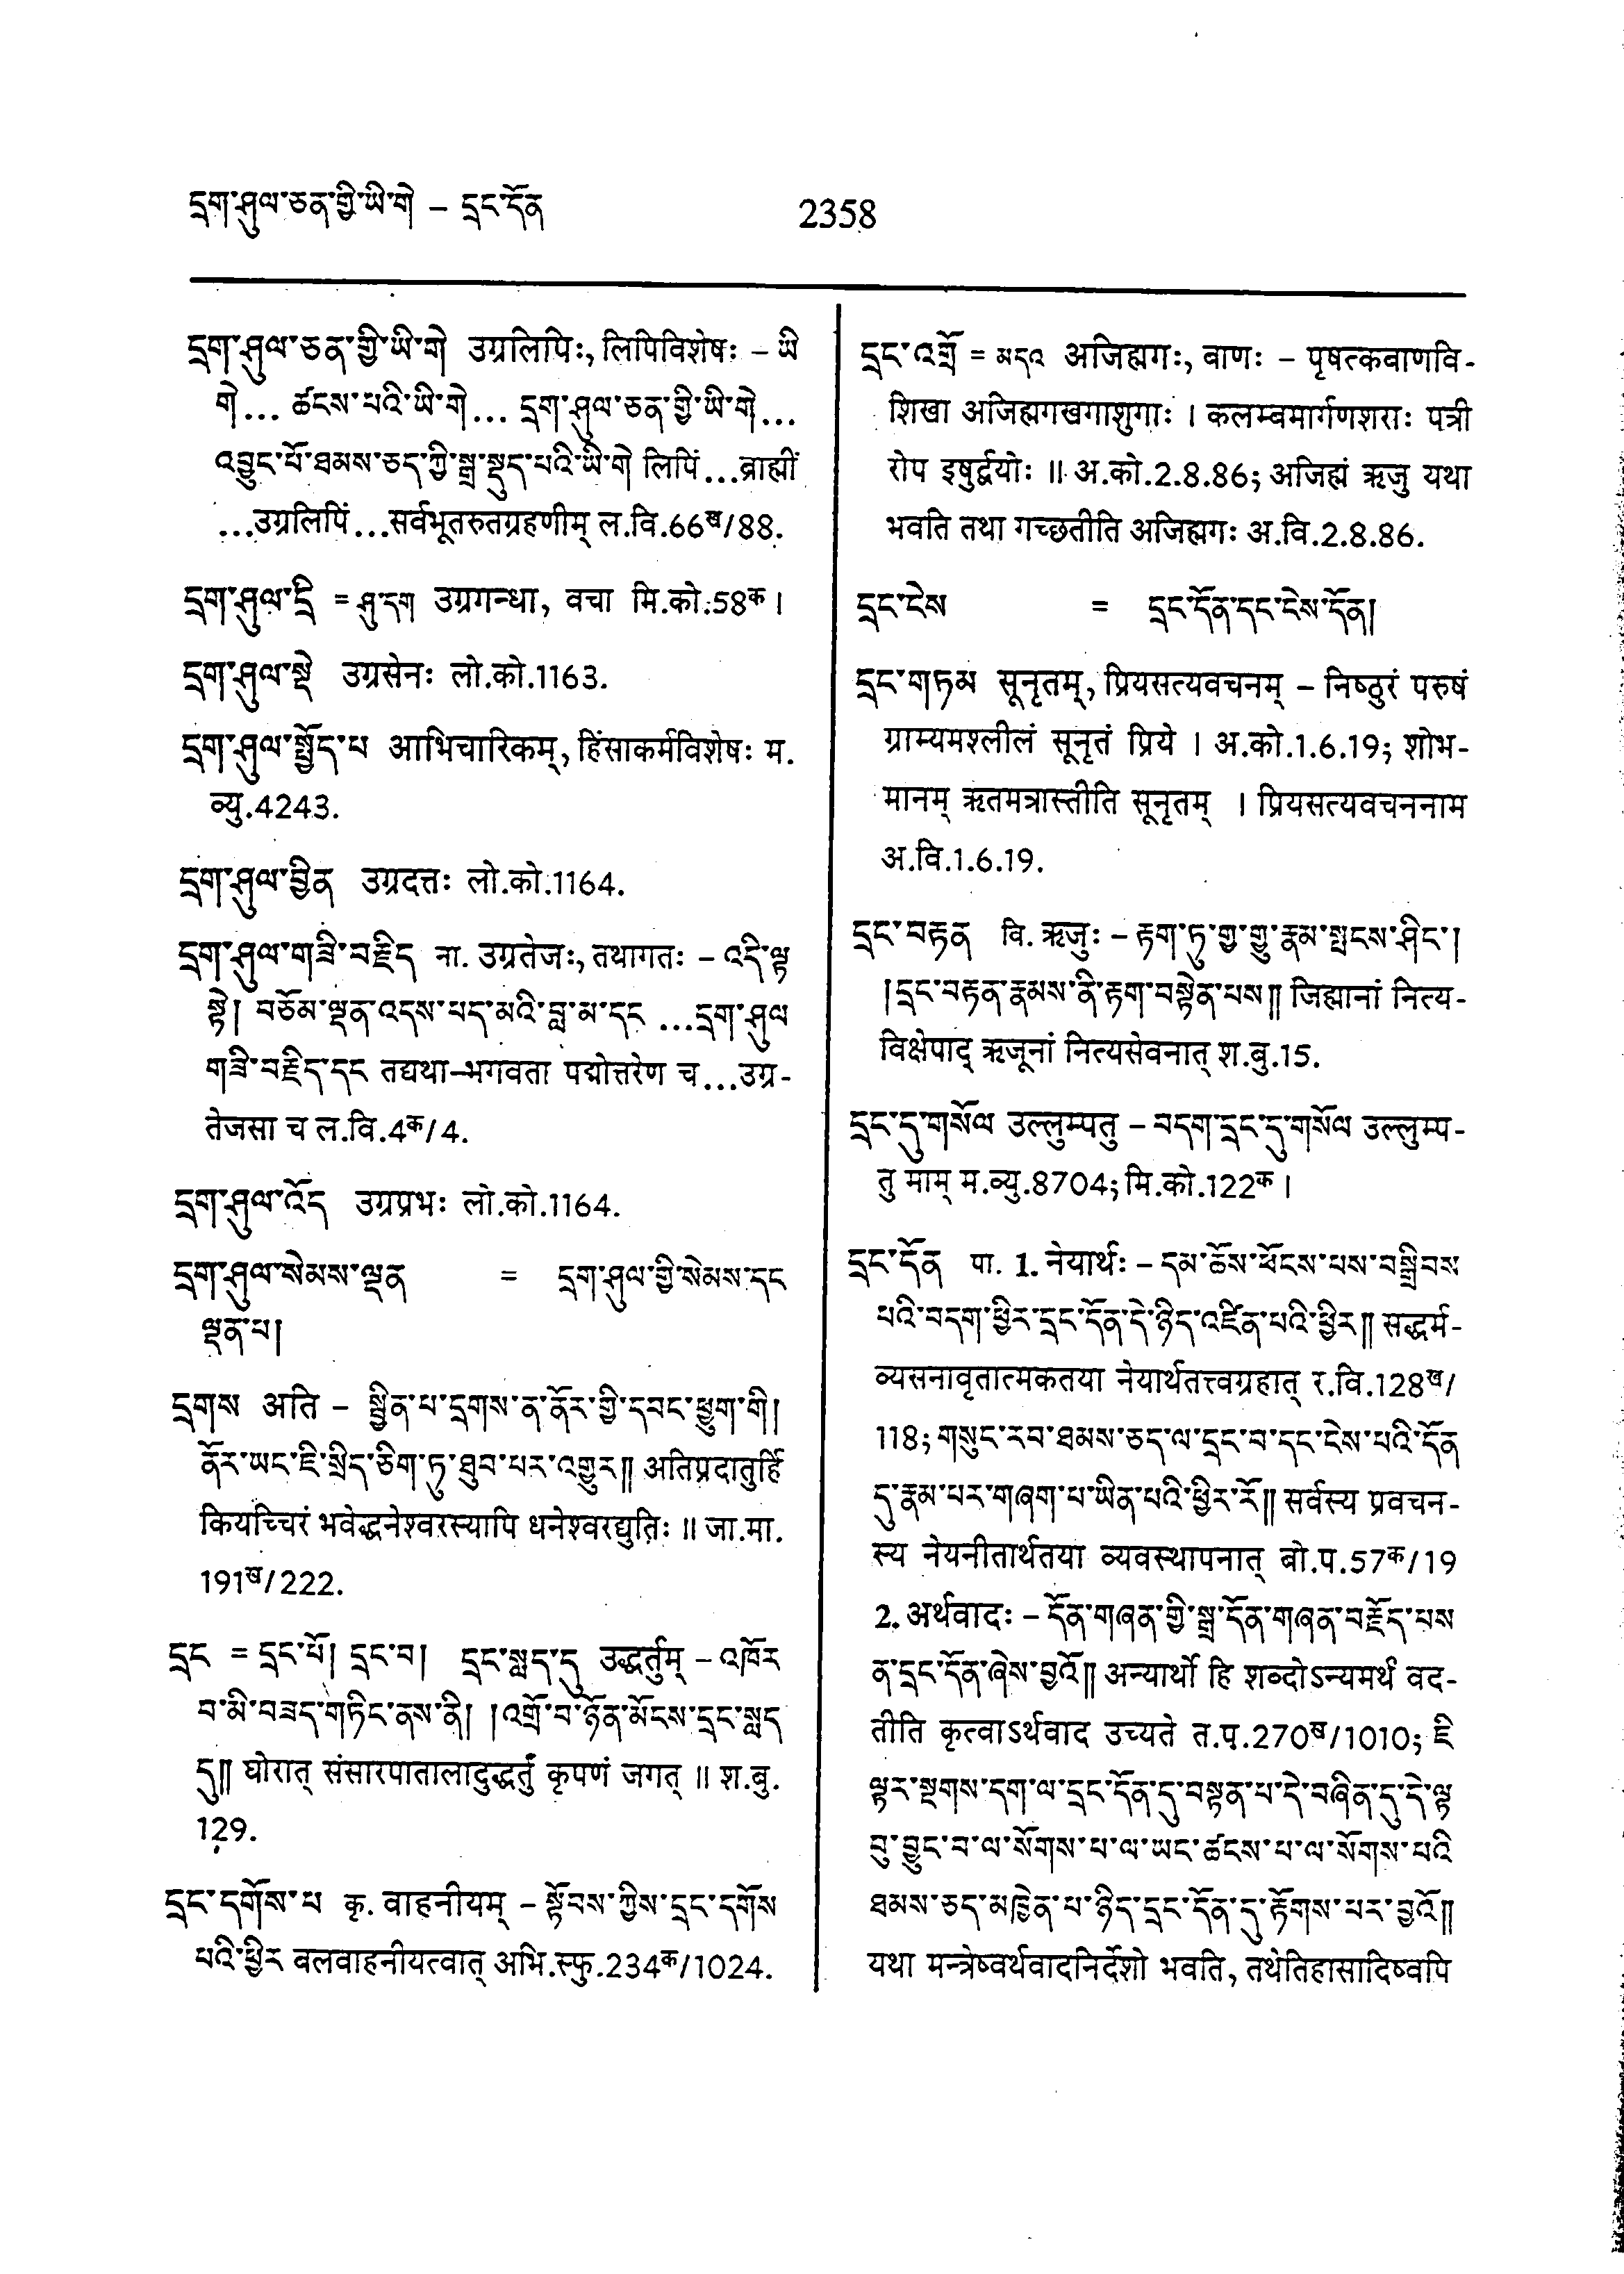 དྲག་ཤུལ་ཅན་གྱི་ཡི་གེ – དྲང་དོན
2358
དྲག་ཤུལ་ཅན་གྱི་ཡི་གེ उग्रलिपिः, लिपिविशेषः – ཡི
གེ... ཚངས་པའི་ཡི་གེ... དྲག་ཤུལ་ཅན་གྱི་ཡི་གེ...
འབྱུང་པོ་ཐམས་ཅད་ཀྱི་སྒྲ་སྡུད་པའི་ཡི་གེ लिपिं...ब्राह्मीं
...उग्रलिपिं...सर्वभूतरुतग्रहणीम् ल.वि.66ख/88.
དྲག་ཤུལ་དྲི = ཤུ་དག उग्रगन्धा, वचा मि.को.58क ।
དྲག་ཤུལ་སྡེ उग्रसेनः लो.को.1163.
དྲག་ཤུལ་སྤྱོད་པ आभिचारिकम्, हिंसाकर्मविशेषः म.
व्यु.4243.
དྲག་ཤུལ་བྱིན उग्रदत्तः लो.को.1164.
དྲག་ཤུལ་གཟི་བརྗིད ना. उग्रतेजः, तथागतः – འདི་ལྟ
སྟེ། བཅོམ་ལྡན་འདས་པད་མའི་བླ་མ་དང ...དྲག་ཤུལ
གཟི་བརྗིད་དང तद्यथा–भगवता पद्मोत्तरेण च...उग्र-
तेजसा च ल.वि.4क/4.
དྲག་ཤུལ་འོད उग्रप्रभः लो.को.1164.
དྲག་ཤུལ་སེམས་ལྡན = དྲག་ཤུལ་གྱི་སེམས་དང
ལྡན་པ།
དྲགས अति – སྦྱིན་པ་དྲགས་ན་ནོར་གྱི་དབང་ཕྱུག་གི།
ནོར་ཡང་ཇི་སྲིད་ཅིག་ཏུ་ཐུབ་པར་འགྱུར༎ अतिप्रदातुर्हि
कियच्चिरं भवेद्धनेश्वरस्यापि धनेश्वरद्युतिः ॥ जा.मा.
191ख/222.
དྲང = དྲང་པོ། དྲང་བ། དྲང་སླད་དུ उद्धर्तुम् – འཁོར
བ་མི་བཟད་གཏིང་ནས་ནི། །འགྲོ་བ་ཉོན་མོངས་དྲང་སླད
དུ༎ घोरात् संसारपातालादुद्धर्तुं कृपणं जगत् ॥ श.बु.
129.
དྲང་དགོས་པ कृ. वाहनीयम् – སྟོབས་ཀྱིས་དྲང་དགོས
པའི་ཕྱིར बलवाहनीयत्वात् अभि.स्फु.234क/1024.
དྲང་འགྲོ = མདའ अजिह्मगः, बाणः – पृषत्कबाणवि-
शिखा अजिह्मगखगाशुगाः । कलम्बमार्गणशराः पत्री
रोप इषुर्द्वयोः ॥ अ.को.2.8.86; अजिह्मं ऋजु यथा
भवति तथा गच्छतीति अजिह्मगः अ.वि.2.8.86.
དྲང་ངེས = དྲང་དོན་དང་ངེས་དོན།
དྲང་གཏམ सूनृतम्, प्रियसत्यवचनम् – निष्ठुरं परुषं
ग्राम्यमश्लीलं सूनृतं प्रिये । अ.को.1.6.19; शोभ-
मानम् ऋतमत्रास्तीति सूनृतम् । प्रियसत्यवचननाम
अ.वि.1.6.19.
དྲང་བརྟན वि. ऋजुः – རྟག་ཏུ་གྱ་གྱུ་རྣམ་སྤངས་ཤིང་།
།དྲང་བརྟན་རྣམས་ནི་རྟག་བསྟེན་པས༎ जिह्मानां नित्य-
विक्षेपाद् ऋजूनां नित्यसेवनात् श.बु.15.
དྲང་དུ་གསོལ उल्लुम्पतु – བདག་དྲང་དུ་གསོལ उल्लुम्प-
तु माम् म.व्यु.8704; मि.को.122क ।
དྲང་དོན पा. 1. नेयार्थः – དམ་ཆོས་ཕོངས་པས་བསྒྲིབས
པའི་བདག་ཕྱིར་དྲང་དོན་དེ་ཉིད་འཛིན་པའི་ཕྱིར༎ सद्धर्म-
व्यसनावृतात्मकतया नेयार्थतत्त्वग्रहात् र.वि.128ख/
118; གསུང་རབ་ཐམས་ཅད་ལ་དྲང་བ་དང་ངེས་པའི་དོན
དུ་རྣམ་པར་གཞག་པ་ཡིན་པའི་ཕྱིར་རོ༎ सर्वस्य प्रवचन-
स्य नेयनीतार्थतया व्यवस्थापनात् बो.प.57क/19
2. अर्थवादः – དོན་གཞན་གྱི་སྒྲ་དོན་གཞན་བརྗོད་པས
ན་དྲང་དོན་ཞེས་བྱའོ༎ अन्यार्थो हि शब्दोऽन्यमर्थं वद-
तीति कृत्वाऽर्थवाद उच्यते त.प.270ख/1010; ཇི
ལྟར་སྔགས་དག་ལ་དྲང་དོན་དུ་བསྟན་པ་དེ་བཞིན་དུ་དེ་ལྟ
བུ་བྱུང་བ་ལ་སོགས་པ་ལ་ཡང་ཚངས་པ་ལ་སོགས་པའི
ཐམས་ཅད་མཁྱེན་པ་ཉིད་དྲང་དོན་དུ་རྟོགས་པར་བྱའོ༎
यथा मन्त्रेष्वर्थवादनिर्देशो भवति, तथेतिहासादिष्वपि